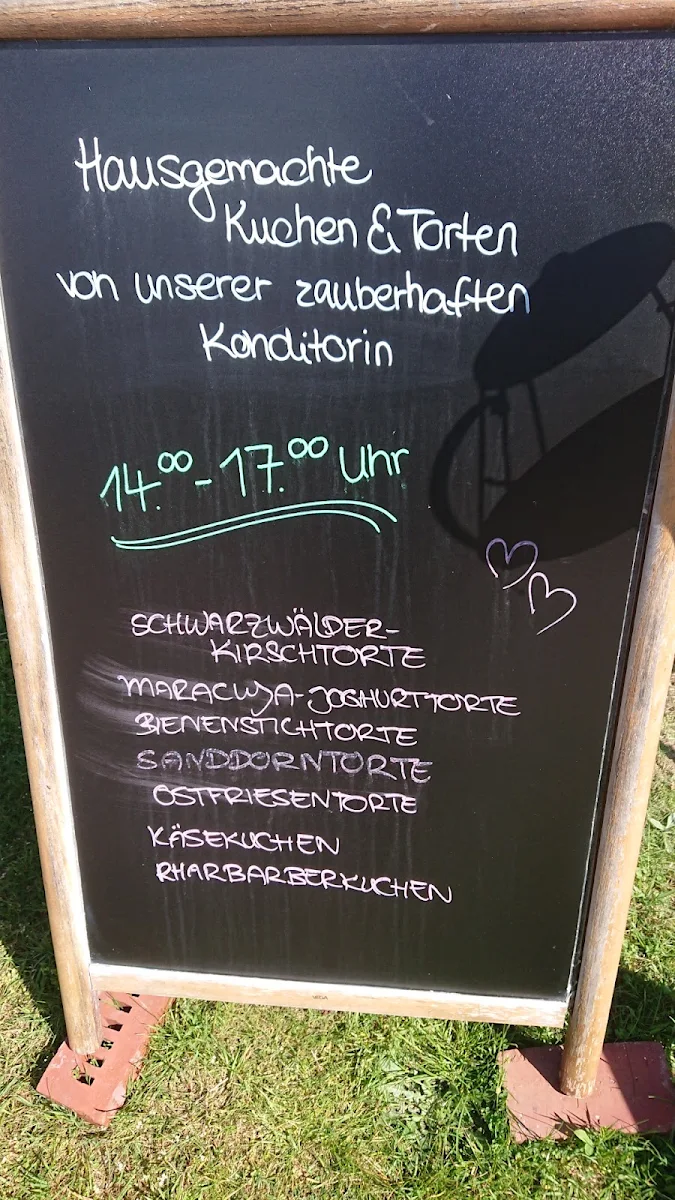 Hausgemachte
Kuchen & Torten
von unserer zauberhaften
Konditorin
14.00 - 17.00 Uhr
SCHWARZWÄLDER-
KIRSCHTORTE
MARACUJA-JOGHURTTORTE
BIENENSTICHTORTE
SANDDORNTORTE
OSTFRIESENTORTE
KÄSEKUCHEN
RHARBARBERKUCHEN